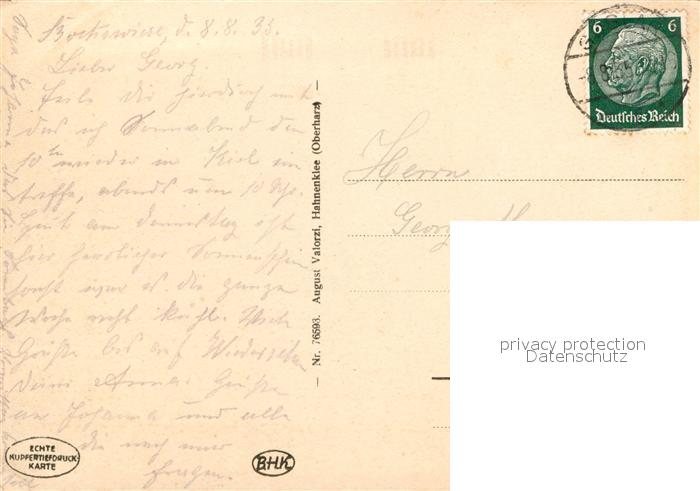 Bockswiese, d. 8.8.35.
Lieber Georg.
Teile dir hierdurch mit
das ich Sonnabend den
10ten wieder in Kiel ein
treffe, abends um 10 Uhr.
Heut am Donnerstag ist
hier herrlicher Sonnenschein
sonst war es die ganze
Woche recht kühl. Viele
Grüße bis auf Wiedersehen
deine Anna. Grüße
an Johanna und alle
die nach mir
fragen.
ECHTE
KUPFERTIEFDRUCK-
KARTE
BHK
Nr. 76593. August Vatorzi, Hahnenklee (Oberharz)
6 6
Deutsches Reich
Herrn
Georg
privacy protection
Datenschutz